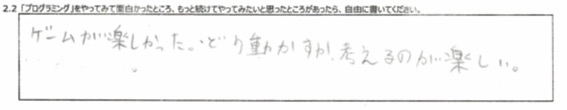 2.2 「プログラミング」をやってみて面白かったところ、もっと続けてやってみたいと思ったところがあったら、自由に書いてください。
ゲームが楽しかった。どう動かすか考えるのが楽しい。